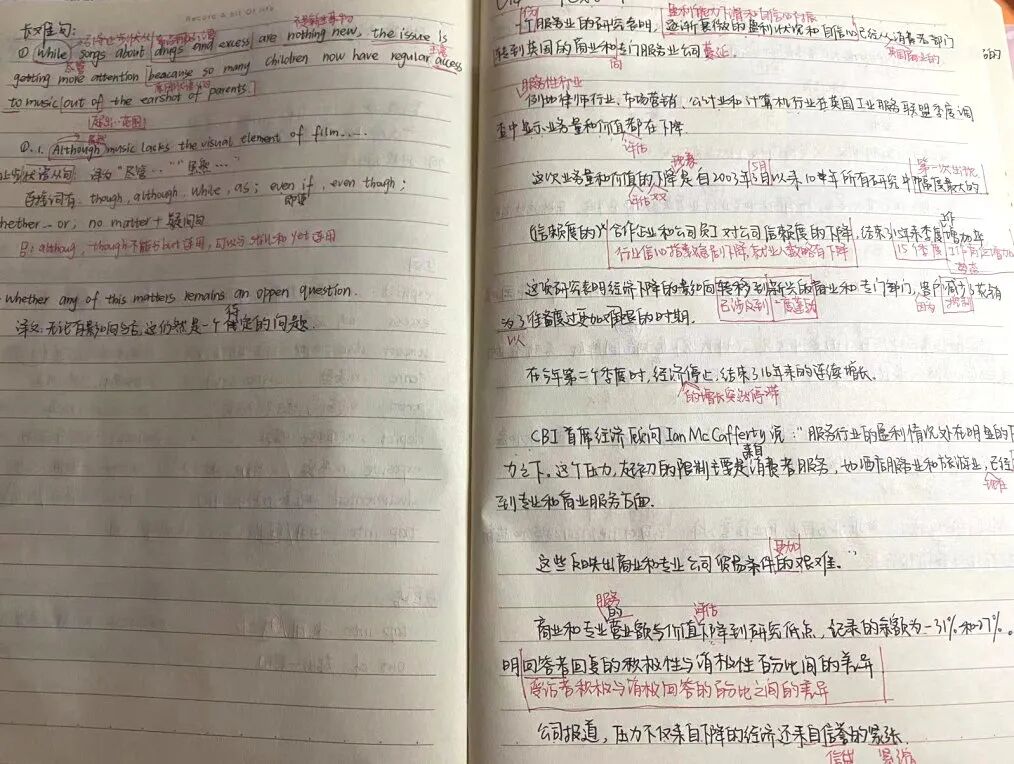 Record a bit of life
长难句:
① While songs about drugs and excess are nothing new, the issue is
getting more attention beacause so many children now have regular access
to music out of the earshot of parents.
超出…范围
①.1. Although music lacks the visual element of film.....
让步状语从句: 译为 "尽管…" "虽然…"
连接词有: though, although, while, as; even if, even though;
即使
whether...or; no matter + 疑问句
although, though不能与but连用, 可以与still和yet连用
Whether any of this matters remains an oppen question.
译文: 无论有影响与否, 这仍然是一个待定的问题.
一个服务业的研究表明,
转到英国的商业和专门服务业公司蔓延.
服务性行业
例如律师行业, 市场营销, 会计业和计算机行业在英国工业服务联盟季度调
查中显示业务量和价值都在下降.
评估
第一次出现
这次业务量和价值的下降是自2003年5月以来10年所有研究中幅度最大的
评估
合作企业和公司员工对公司信赖度的下降, 结束了15年来季度增加
行业信心指数急剧下降, 就业人数略有下降
15个季度
这项研究表明经济下降的影响向转移到新兴的商业和专门部门,
已涉及到
为了准备度过更加艰难的时期.
以
在今年第二个季度时, 经济停止, 结束了16年来的连续增长.
的增长突然停滞
CBI 首席经济顾问 Ian McCafferty 说: "服务行业的盈利情况处在明显的
来自
力之下. 这个压力, 在最初的限制主要是消费者服务, 如酒店服务业和旅游业, 已经
到专业和商业服务方面.
更加
这些反映出商业和专业公司贸易条件的艰难."
服务
评估
商业和专业的营业额与价值下降到研究低点, 记录的余额为-31%和37%.
明回答者回复的积极性与消极性百分比间的差异
受访者积极与消极回答的百分比之间的差异
公司报道, 压力不仅来自下降的经济还来自信誉的紧张.
信贷 紧缩